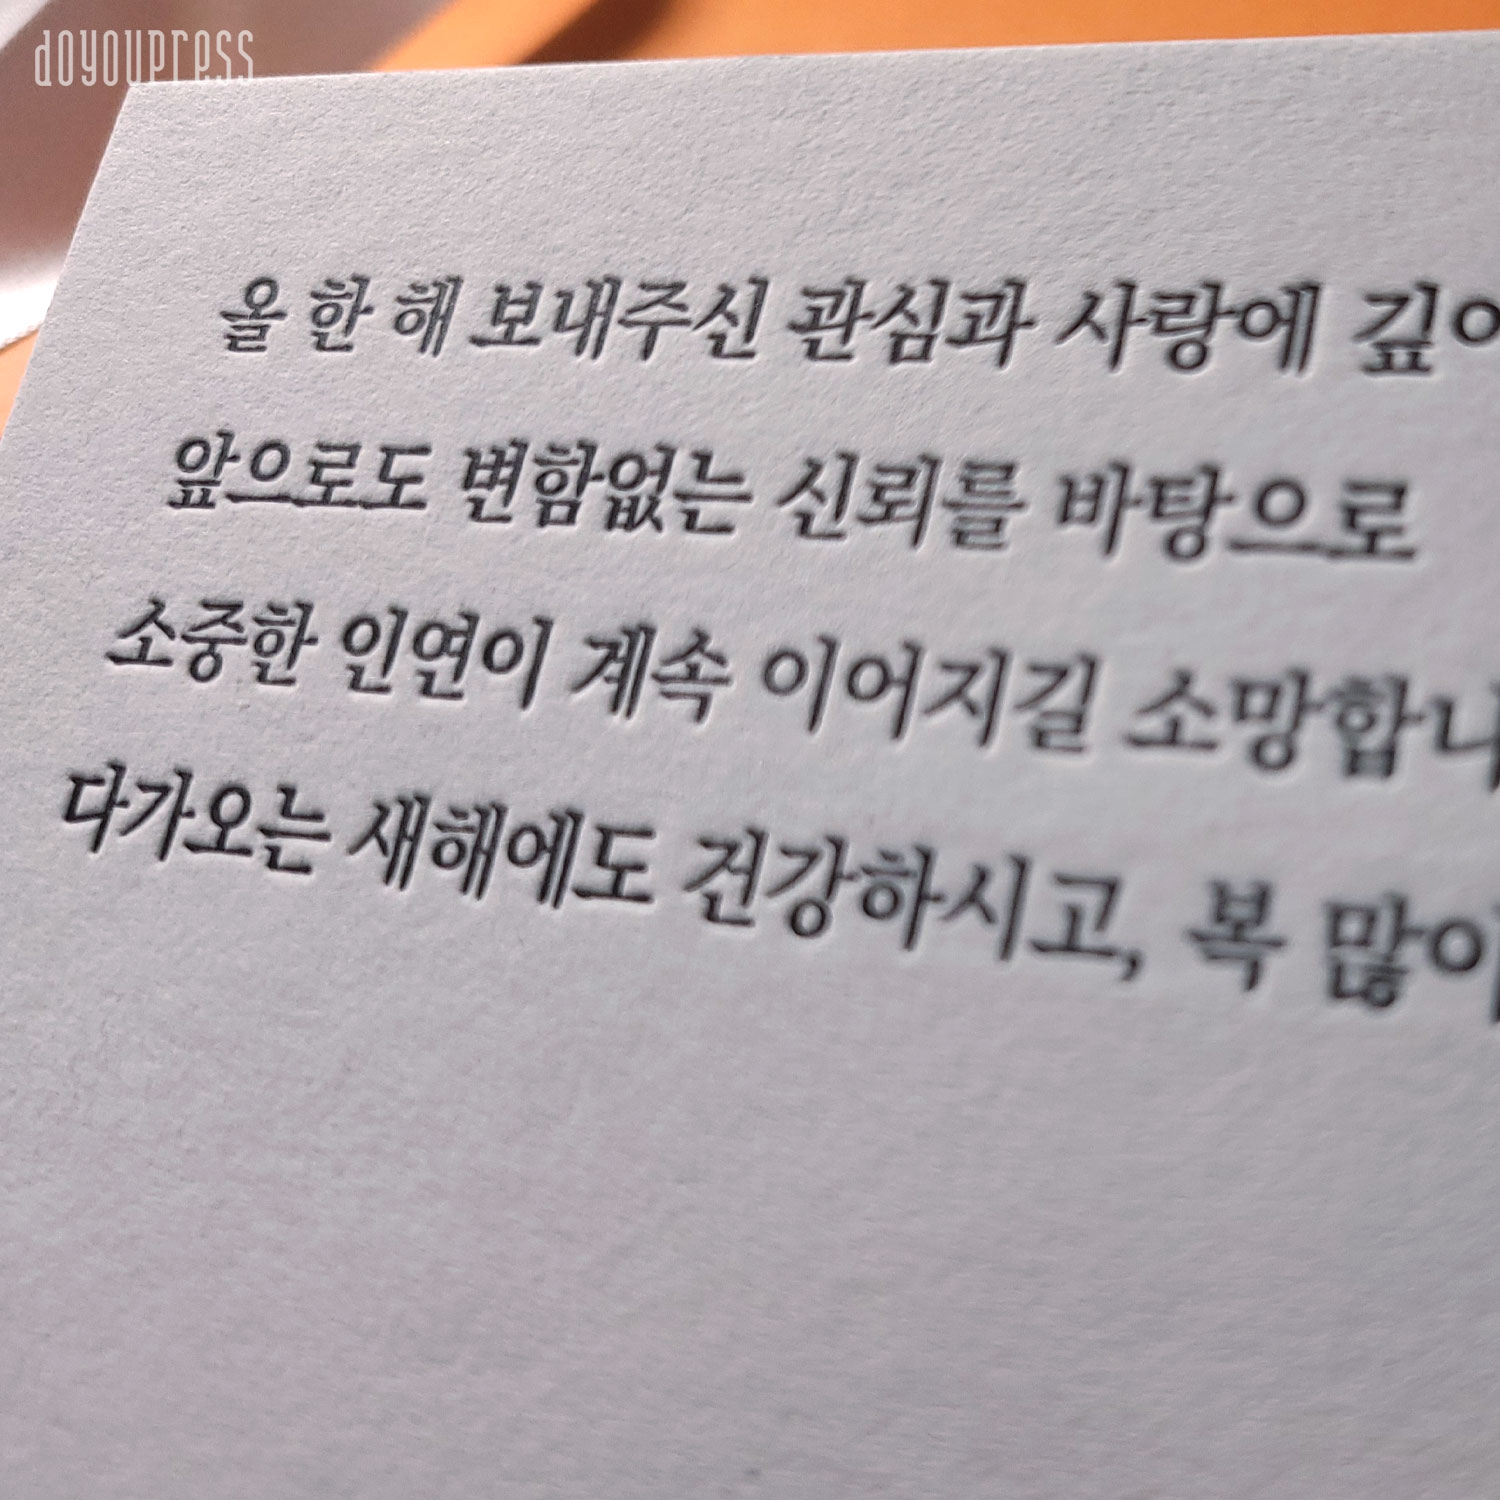 doyoupress
올 한 해 보내주신 관심과 사랑에 깊어
앞으로도 변함없는 신뢰를 바탕으로
소중한 인연이 계속 이어지길 소망합니
다가오는 새해에도 건강하시고, 복 많이